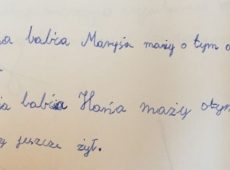 babcia Marysia maży o tym
babcia Hania maży o tym
jeszcze żył.